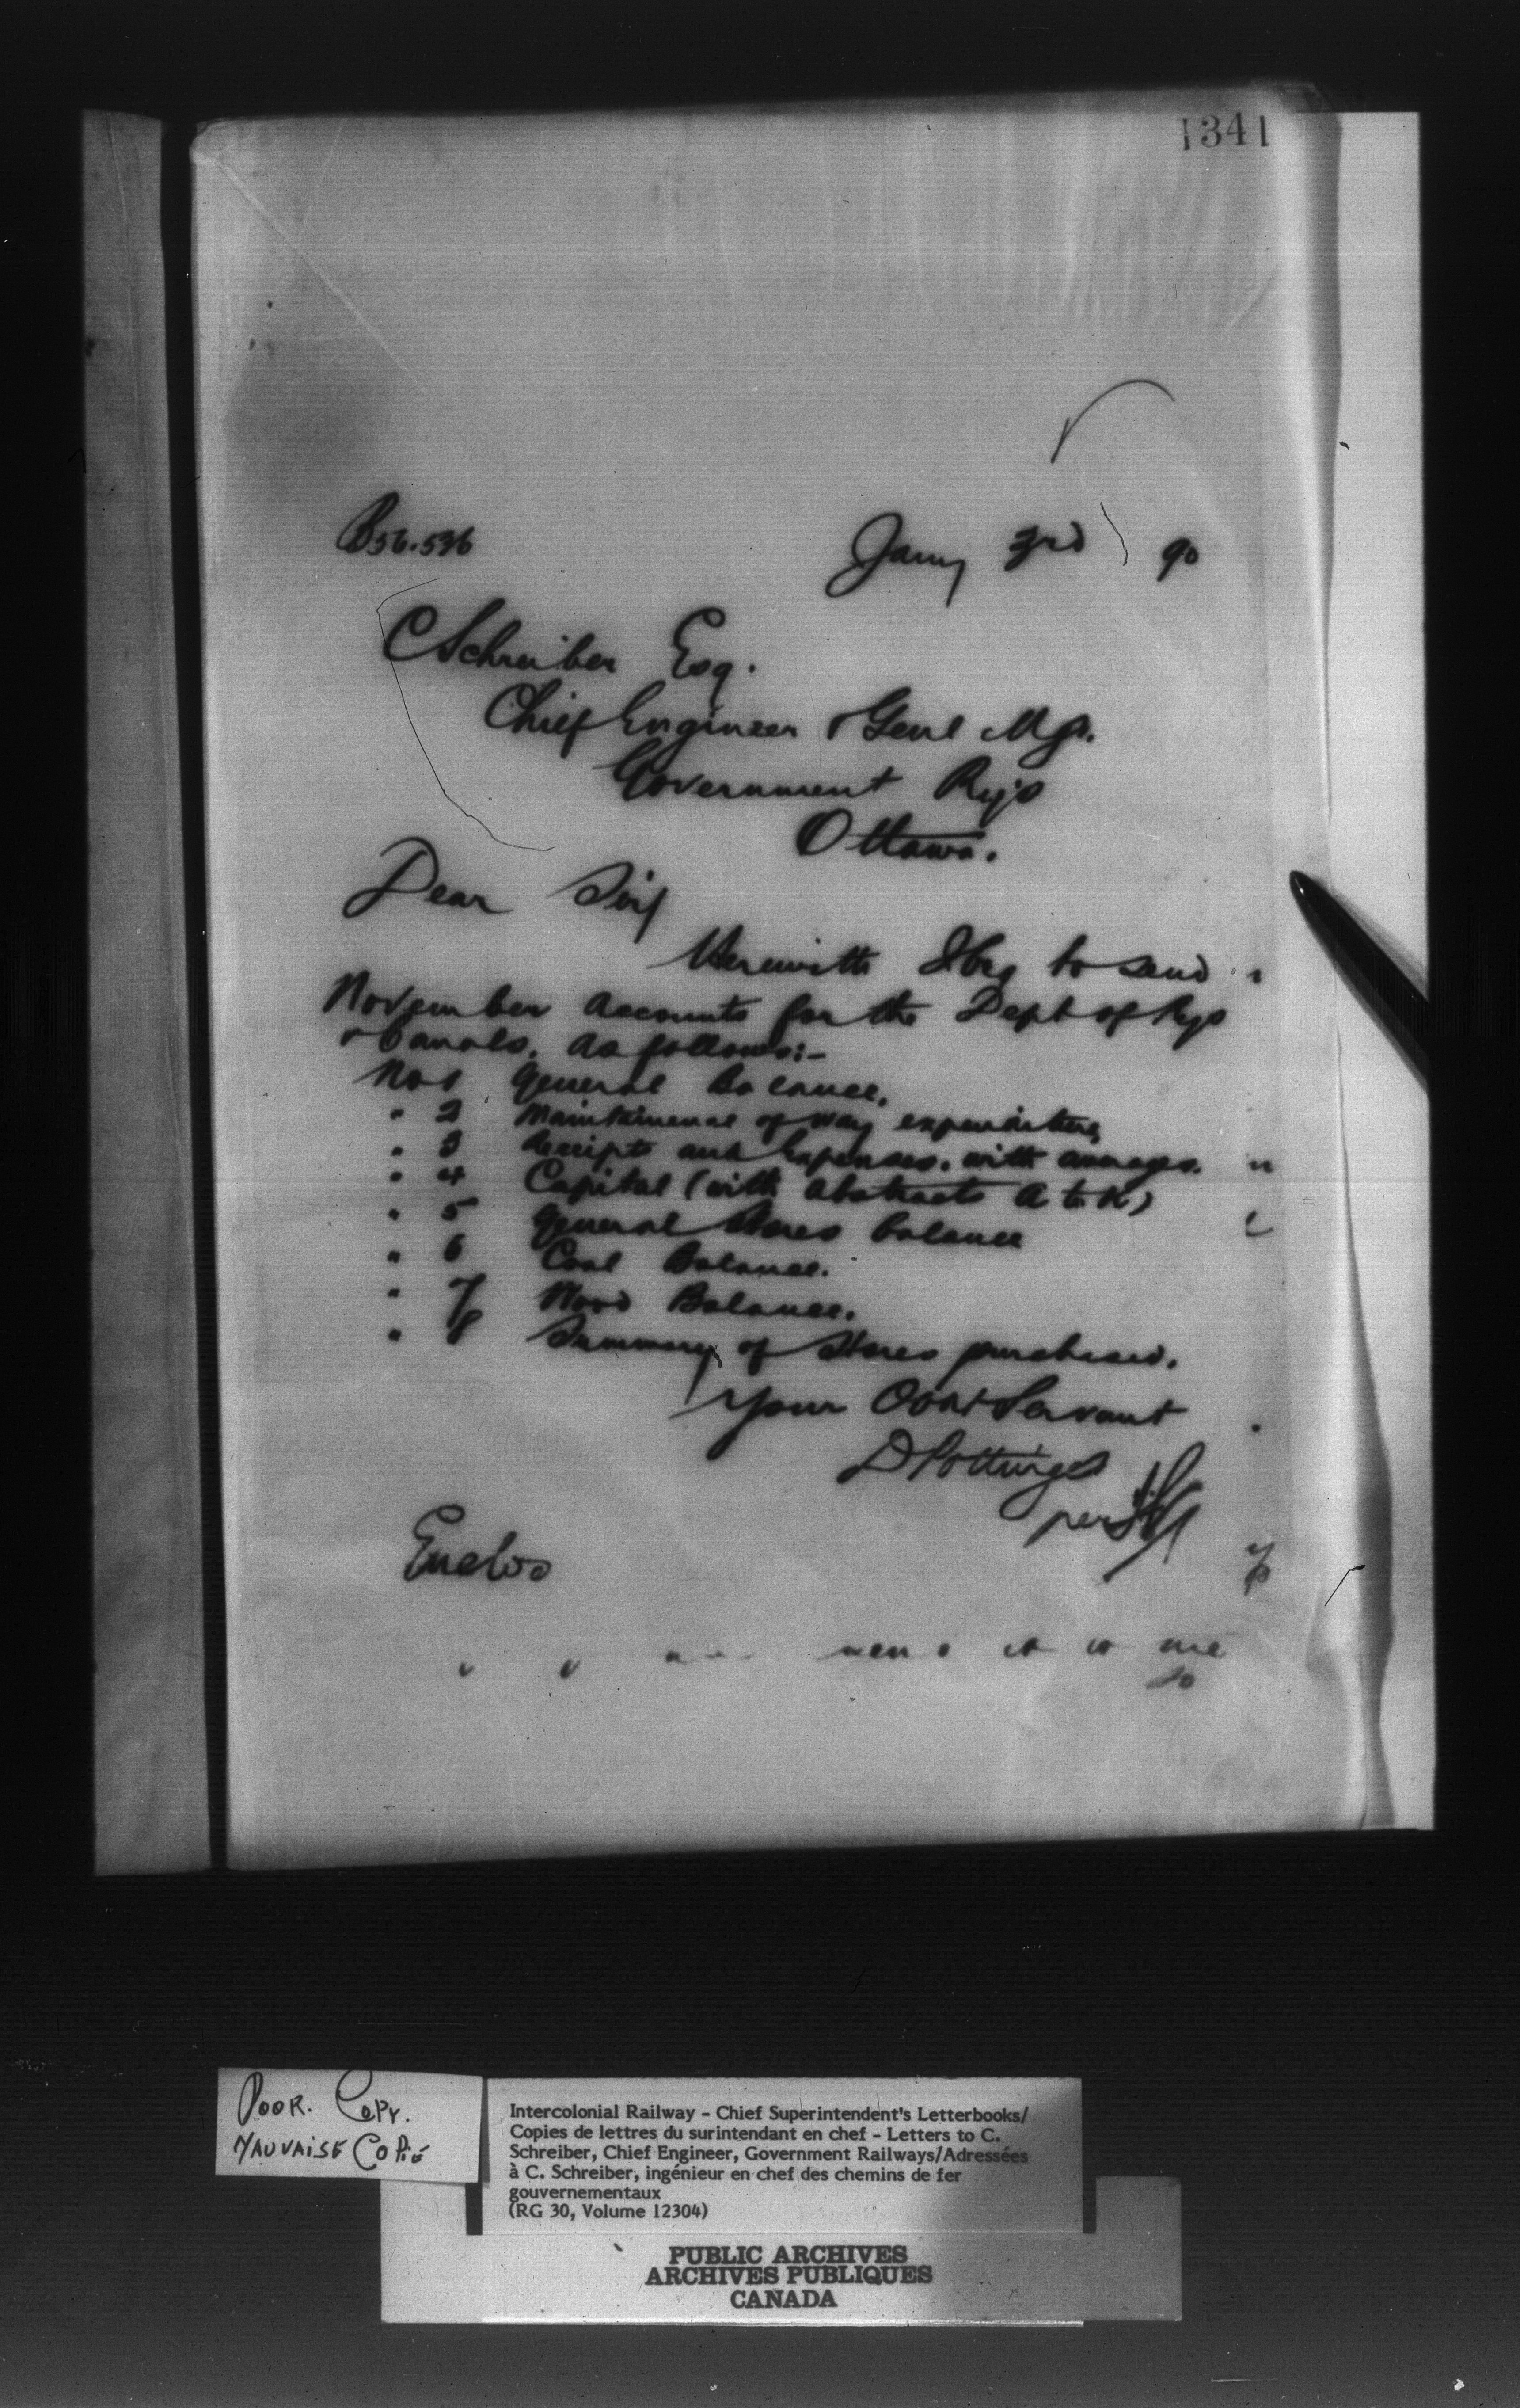 1341
B56.536
Jany 3rd 90
C Schreiber Esq.
Chief Engineer & Genl Mgr.
Government Rys
Ottawa.
Dear Sir,
Herewith I beg to send
November accounts for the Dept of Rys
& Canals, as follows:-
No 1 General Balance.
" 2 Maintenance of Way expenditure,
" 3 Receipts and Expenses, with averages.
" 4 Capital (with abstracts A to K)
" 5 General Stores balance
" 6 Coal Balance.
" 7 Wood Balance.
" 8 Summary of Stores purchased.
Your Obdt Servant
D Pottinger
per
Enclos
POOR. COPY.
MAUVAISE COPIE
Intercolonial Railway - Chief Superintendent's Letterbooks/
Copies de lettres du surintendant en chef - Letters to C.
Schreiber, Chief Engineer, Government Railways/Adressées
à C. Schreiber, ingénieur en chef des chemins de fer
gouvernementaux
(RG 30, Volume 12304)
PUBLIC ARCHIVES
ARCHIVES PUBLIQUES
CANADA